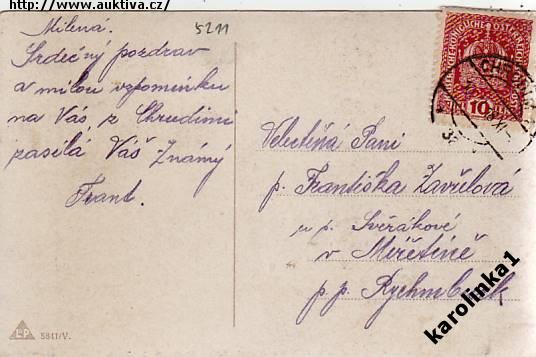 http://www.auktiva.cz/
5211
Milená.
Srdečný pozdrav
a milou vzpomínku
na Vás, z Chrudimi
zasílá Váš Známý
Frant.
KAISERLICHE KÖNIGLICHE ÖSTERREICHISCHE
10
CHRUDIM
Velectěná Paní
p. Františka Zavřelová
u p. Svěrákové
v Miřetíně
p. p. Rychmburk
LP
5841/V.
karolinka1